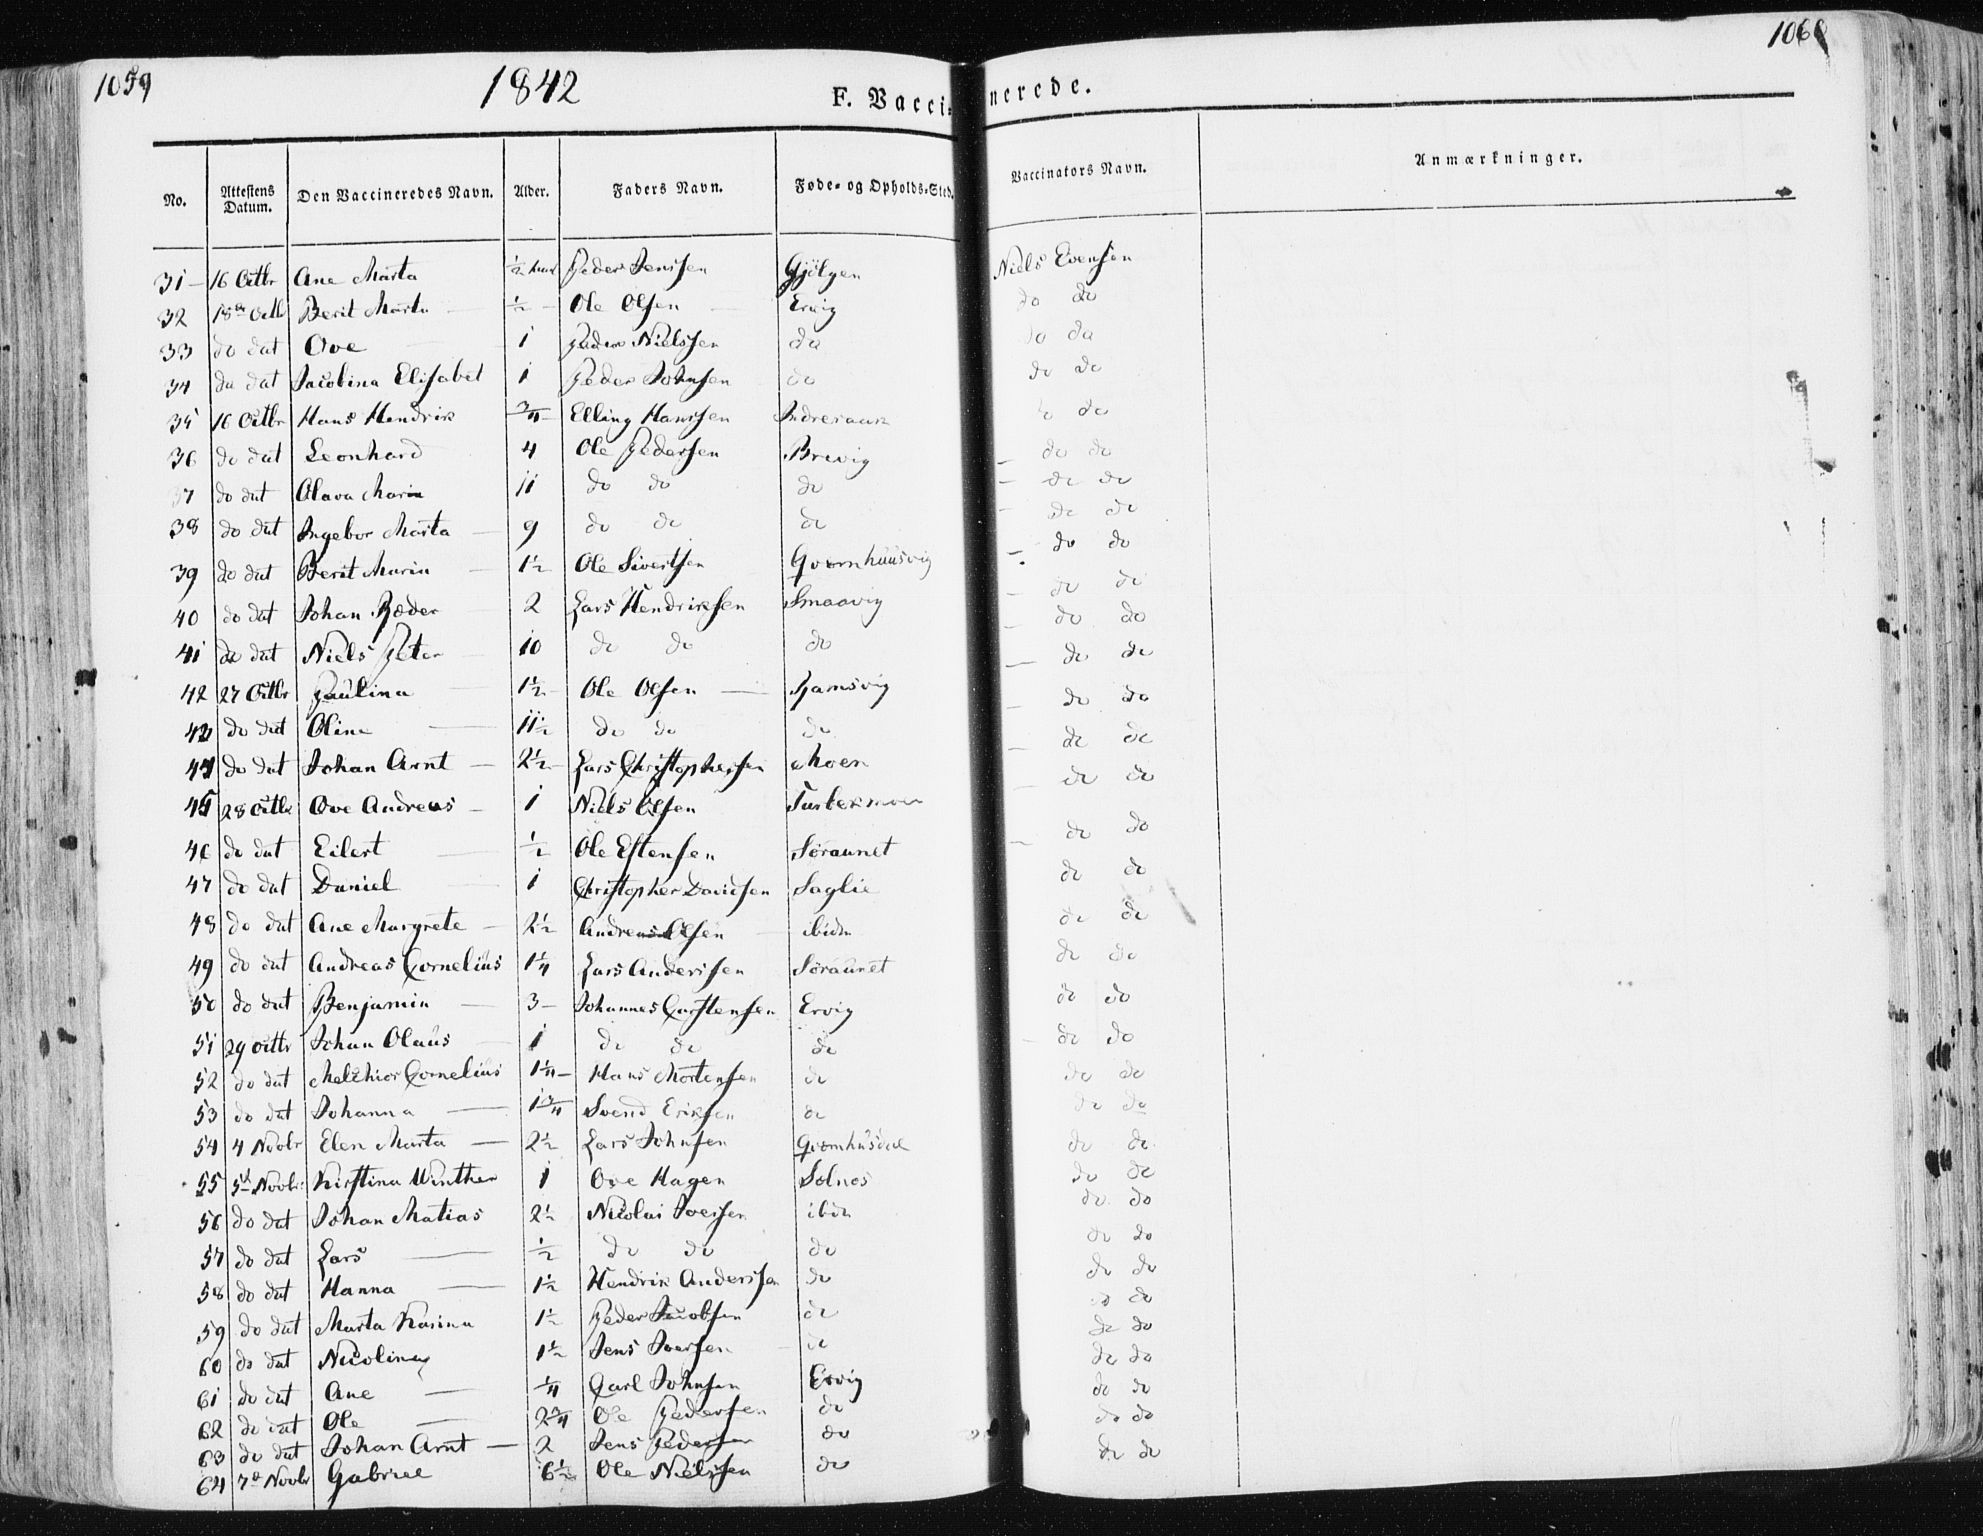 1059 1842 F. Vaccinerede. 1060
No. Attestens Datum. Den Vaccineredes Navn. Alder. Faders Navn. Føde- og Opholds-Sted. Vaccinators Navn. Anmærkninger.
31 16 Octbr Ane Marta ½ Peder Jensen Gjölgen Niels Evensen
32 18de Octb Berit Marta ½ Ole Olsen Ervig do do
33 do dat Ove 1 Peder Nielssen do do do
34 do dat Jacobina Elisabet 1 Peder Johnsen do do do
35 16 Octbr Hans Hendrik ¾ Elling Hanssen do do
36 do dat Leonhard 4 Ole Pedersen Brevig do do
37 do dat Olava Maria 11 do do do do do
38 do dat Ingebor Marta 9 do do do do do
39 do dat Berit Maria 1½ Ole Sivertsen Qvernhuusvig do do
40 do dat Johan Peder 2 Lars Hendriksen Smaavig do do
41 do dat Niels Peter 10 do do do do do
42 27 Octbr Paulina 1½ Ole Olsen Ramsvig do do
43 do dat Oline 11½ do do do do do
44 do dat Johan Arnt 2½ Lars Christophersen Moen do do
45 28 Octbr Ove Andreas 1 Niels Olsen do do
46 do dat Eilert ½ Ole Estensen Söraunet do do
47 do dat Daniel 1 Christopher Davidsen Saglie do do
48 do dat Ane Margrete 2½ Andreas Olsen ibidm do do
49 do dat Andreas Cornelius 1¼ Lars Anderssen Söraunet do do
50 do dat Benjamin 3 Johannes Carstensen Ervig do do
51 29 Octbr Johan Olaus 1 do do do do do
52 do dat Melchior Cornelius 1¼ Hans Mortensen do do do
53 do dat Johanna 1¾ Svend Eriksen do do do
54 4 Novbr Elen Marta 2½ Lars Johnsen Qvernhusdal do do
55 5t Novbr Kirstina Winther 1 Ove Hagen Solnes do do
56 do dat Johan Matias 2½ Nicolai Iversen ibdm do do
57 do dat Lars ½ do do do do do
58 do dat Hanna 1½ Hendrik Anderssen do do do
59 do dat Marta Karina 1½ Peder Jacobsen do do do
60 do dat Nicolina 1½ Jens Iversen do do do
61 do dat Ane ¼ Carl Johnsen Ervig do do
62 do dat Ole 2¾ Ole Pedersen do do do
63 do dat Johan Arnt 2 Jens Pedersen do do do
64 7de Novbr Gabriel 6½ Ole Nielssen do do do